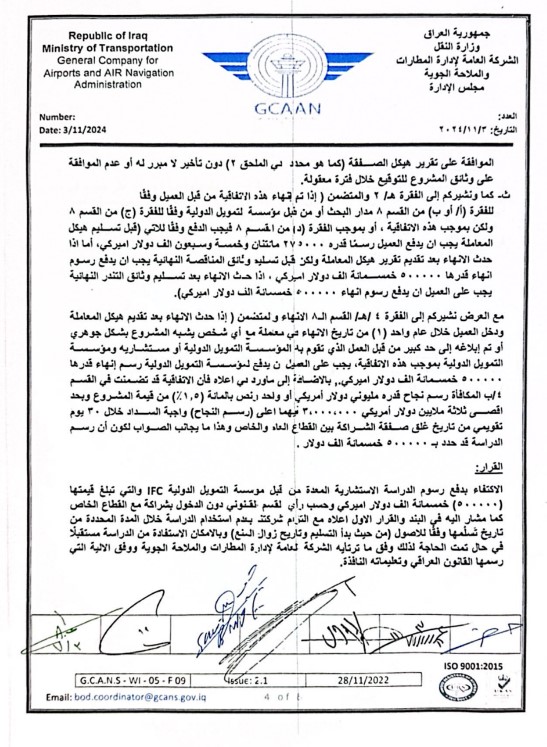 Republic of Iraq
Ministry of Transportation
General Company for
Airports and AIR Navigation
Administration
GCAAN
جمهورية العراق
وزارة النقل
الشركة العامة لإدارة المطارات
والملاحة الجوية
مجلس الإدارة
Number:
Date: 3/11/2024
العدد:
التاريخ: ٢٠٢٤/١١/٣
الموافقة على تقرير هيكل الصفقة (كما هو محدد في الملحق ٢) دون تأخير لا مبرر له أو عدم الموافقة
على وثائق المشروع للتوقيع خلال فترة معقولة.
ث- كما ونشيركم إلى الفقرة هـ/ ٢ والمتضمن ( إذا تم إنهاء هذه الاتفاقية من قبل العميل وفقًا
للفقرة (أ/ أو ب) من القسم ٨ مدار البحث أو من قبل مؤسسة لتمويل الدولية وفقًا للفقرة (ج) من القسم ٨
ولكن بموجب هذه الاتفاقية ، أو بموجب الفقرة (د) من القسم ٨ فيجب الدفع وفقًا للآتي (قبل تسليم هيكل
المعاملة يجب ان يدفع العميل رسمًا قدره ٢٧٥٠٠٠ مائتان وخمسة وسبعون الف دولار اميركي، أما اذا
حدث الانهاء بعد تقديم تقرير هيكل المعاملة ولكن قبل تسليم وثائق المناقصة النهائية يجب ان يدفع رسوم
انهاء قدرها ٥٠٠٠٠٠ خمسمائة الف دولار اميركي ، اذا حدث الانهاء بعد تسليم وثائق التندر النهائية
يجب على العميل ان يدفع رسوم انهاء ٥٠٠٠٠٠ خمسمائة الف دولار اميركي).
مع العرض نشيركم إلى الفقرة ٤ /هـ/ القسم الـ٨ الانهاء والمتضمن ( إذا حدث الانهاء بعد تقديم هيكل المعاملة
ودخل العميل خلال عام واحد (١) من تاريخ الانهاء في معاملة مع أي شخص يشبه المشروع بشكل جوهري
أو تم إبلاغه إلى حد كبير من قبل العمل الذي تقوم به المؤسسة التمويل الدولية أو مستشاريه ومؤسسة
التمويل الدولية بموجب هذه الاتفاقية، يجب على العميل ن يدفع لمؤسسة التمويل الدولية رسم إنهاء قدرها
٥٠٠٠٠٠ خمسمائة الف دولار اميركي,. بالاضافة إلى ماورد في اعلاه فأن الاتفاقية قد تضمنت في القسم
٤/ب المكافأة رسم نجاح قدره مليوني دولار أمريكي أو واحد ونص بالمائة (١,٥٪) من قيمة المشروع وبحد
اقصى ثلاثة ملايين دولار أمريكي ٣,٠٠٠,٠٠٠ أيهما اعلى (رسم النجاح) واجبة السداد خلال ٣٠ يوم
تقويمي من تاريخ غلق صفقة الشراكة بين القطاع العام والخاص وهذا ما يجانب الصواب لكون أن رسم
الدراسة قد حدد بـ ٥٠٠٠٠٠ خمسمائة الف دولار .
القرار:
الاكتفاء بدفع رسوم الدراسة الاستشارية المعدة من قبل موسسة التمويل الدولية IFC والتي تبلغ قيمتها
(٥٠٠٠٠٠) خمسمائة الف دولار اميركي وحسب رأي لقسم القانوني دون الدخول بشراكة مع القطاع الخاص
كما مشار اليه في البند والقرار الاول اعلاه مع التزام شركتنا بعدم استخدام الدراسة خلال المدة المحددة من
تاريخ تسلمها وفقًا للاصول (من حيث بدأ التسليم وتاريخ زوال المنع) وبالامكان الاستفادة من الدراسة مستقبلًا
في حال تمت الحاجة لذلك وفق ما ترتأيه الشركة لعامة لإدارة المطارات والملاحة الجوية ووفق الالية التي
رسمها القانون العراقي وتعليماته النافذة.
ISO 9001:2015
G.C.A.N.S - WI - 05 - F 09
Issue: 2.1
28/11/2022
Email: bod.coordinator@gcans.gov.iq
4 of